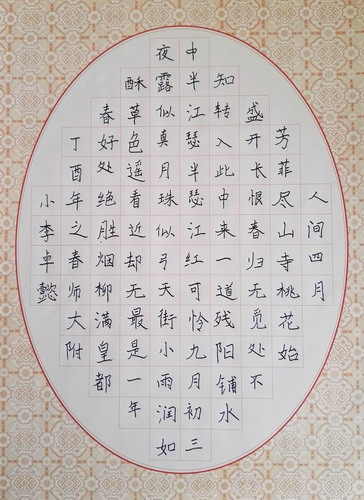 人间四月
芳菲尽山寺桃花始
盛开长恨春归无觅处不
知转入此中来一道残阳铺水
中半江瑟半瑟江红可怜九月初三
夜露似真月珠似弓天街小雨润如
酥草色遥看近却无最是一年
春好处绝胜烟柳满皇都
丁酉年之春师大附
小李卓懿